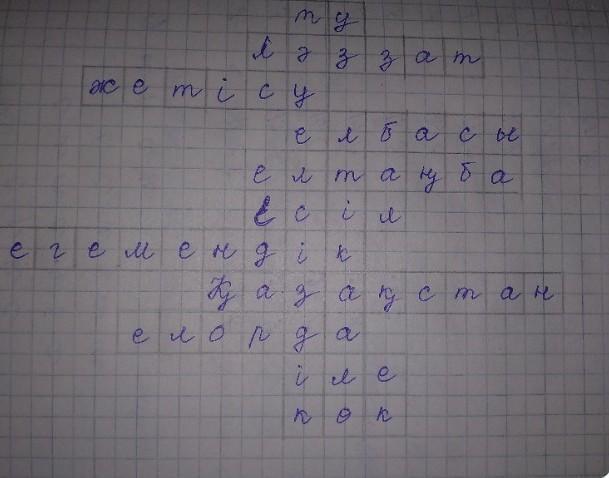 ту
ләззат
жетісу
елбасы
елтаңба
Есіл
егемендік
Қазақстан
елорда
іле
көк